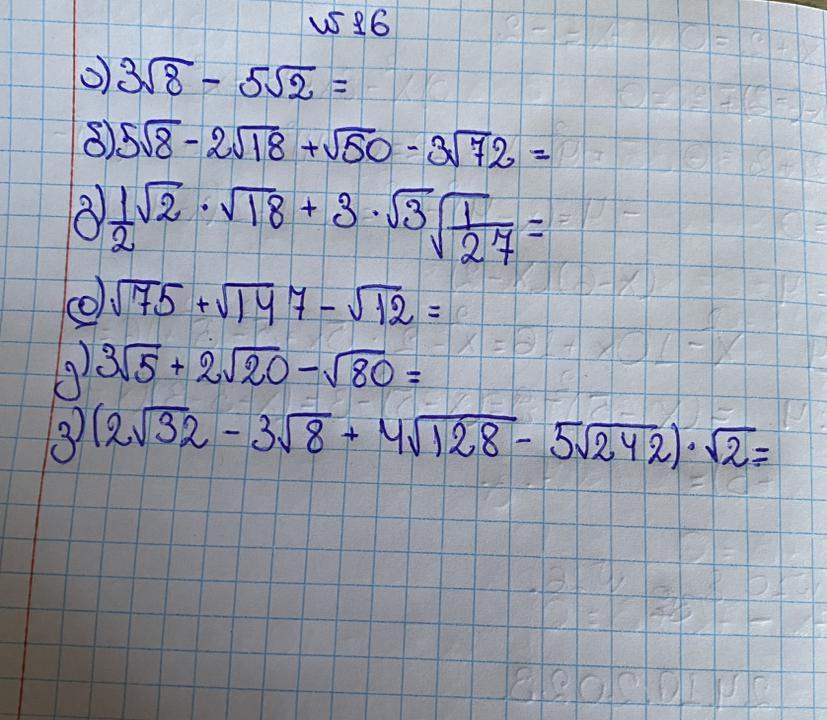 №16
а) 3√8 - 5√2 =
б) 5√8 - 2√18 + √50 - 3√72 =
г) 1/2 √2 · √18 + 3 · √3 √(1/27) =
е) √75 + √147 - √12 =
д) 3√5 + 2√20 - √80 =
з) (2√32 - 3√8 + 4√128 - 5√242) · √2 =